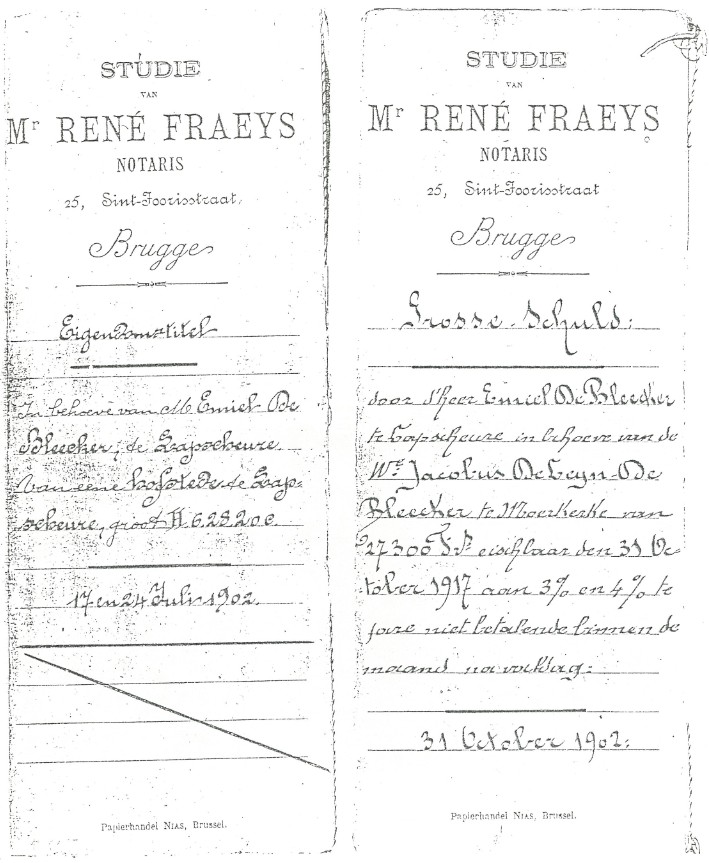 STUDIE
VAN
Mr RENÉ FRAEYS
NOTARIS
25, Sint-Joorisstraat,
Brugge
Eigendomstitel
In behoeve van M. Emiel De
Bleecker, te Lapscheure
van eene hofstede te Lap-
scheure, groot H 6.28.20 c.
17 en 24 Juli 1902.
Papierhandel NIAS, Brussel.
STUDIE
VAN
Mr RENÉ FRAEYS
NOTARIS
25, Sint-Joorisstraat
Brugge
Grosse-Schuld:
door d'heer Emiel De Bleecker
te Lapscheure in behoeve van de
We Jacobus DeLeyn-De
Bleecker te Moerkerke van
27300 Fr eischbaar den 31 Oc-
tober 1917 aan 3% en 4% te
jare niet betalende binnen de
maand na valdag:
31 October 1902:
Papierhandel NIAS, Brussel.